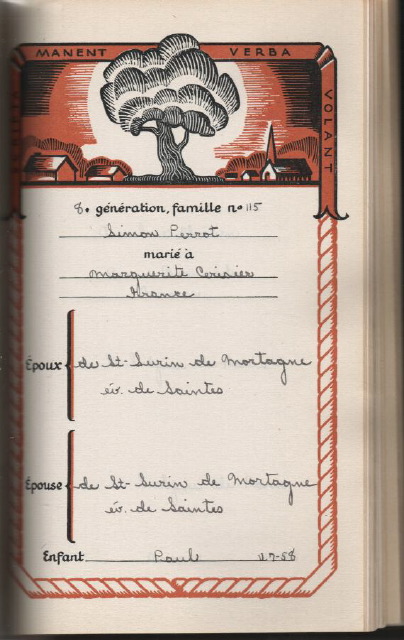 MANENT VERBA
VOLANT
8e génération, famille no 115
Simon Perrot
marié à
Marguerite Cerisier
France
Époux de St-Surin de Mortagne
év. de Saintes
Épouse de St-Surin de Mortagne
év. de Saintes
Enfant Paul